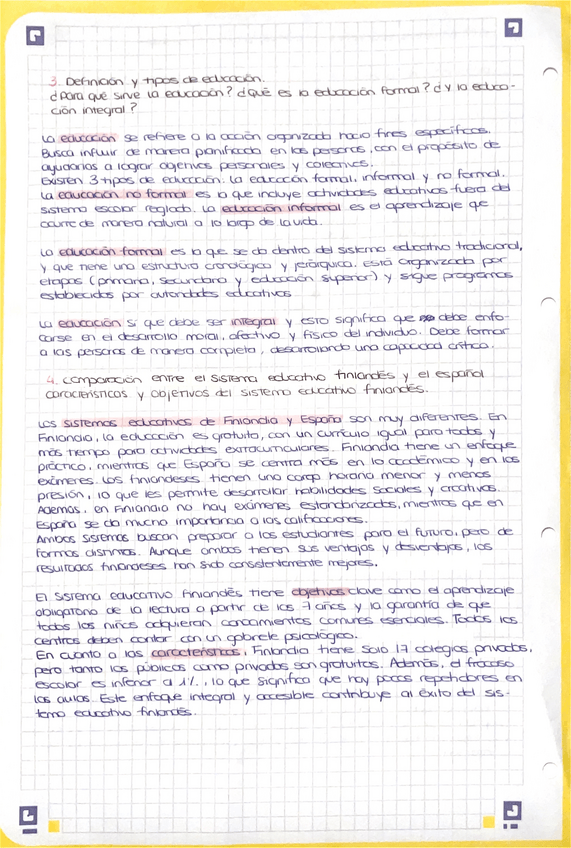 3. Definición y tipos de educación.
¿Para qué sirve la educación? ¿Qué es la educación formal? ¿Y la educa-
ción integral?
La educación se refiere a la acción organizada hacia fines específicos.
Busca influir de manera planificada en las personas, con el propósito de
ayudarlas a lograr objetivos personales y colectivos.
Existen 3 tipos de educación: La educación formal, informal y no formal.
La educación no formal es la que incluye actividades educativas fuera del
sistema escolar reglado. La educación informal es el aprendizaje que
ocurre de manera natural a lo largo de la vida.
La educación formal es la que se da dentro del sistema educativo tradicional,
y que tiene una estructura cronológica y jerárquica. Está organizada por
etapas (primaria, secundaria y educación superior) y sigue programas
establecidos por autoridades educativas.
La educación sí que debe ser integral y esto significa que debe enfo-
carse en el desarrollo moral, afectivo y físico del individuo. Debe formar
a las personas de manera completa, desarrollando una capacidad crítica.
4. Comparación entre el sistema educativo finlandés y el español
características y objetivos del sistema educativo finlandés.
Los sistemas educativos de Finlandia y España son muy diferentes. En
Finlandia, la educación es gratuita, con un currículo igual para todos y
más tiempo para actividades extracurriculares. Finlandia tiene un enfoque
práctico, mientras que España se centra más en lo académico y en los
exámenes. Los finlandeses tienen una carga horaria menor y menos
presión, lo que les permite desarrollar habilidades sociales y creativas.
Además, en Finlandia no hay exámenes estandarizados, mientras que en
España se da mucha importancia a las calificaciones.
Ambos sistemas buscan preparar a los estudiantes para el futuro, pero de
formas distintas. Aunque ambos tienen sus ventajas y desventajas, los
resultados finlandeses han sido consistentemente mejores.
El sistema educativo finlandés tiene objetivos clave como el aprendizaje
obligatorio de la lectura a partir de los 7 años y la garantía de que
todos los niños adquieran conocimientos comunes esenciales. Todos los
centros deben contar con un gabinete psicológico.
En cuanto a las características, Finlandia tiene solo 17 colegios privados,
pero tanto los públicos como privados son gratuitos. Además, el fracaso
escolar es inferior al 1%, lo que significa que hay pocos repetidores en
las aulas. Este enfoque integral y accesible contribuye al éxito del sis-
tema educativo finlandés.